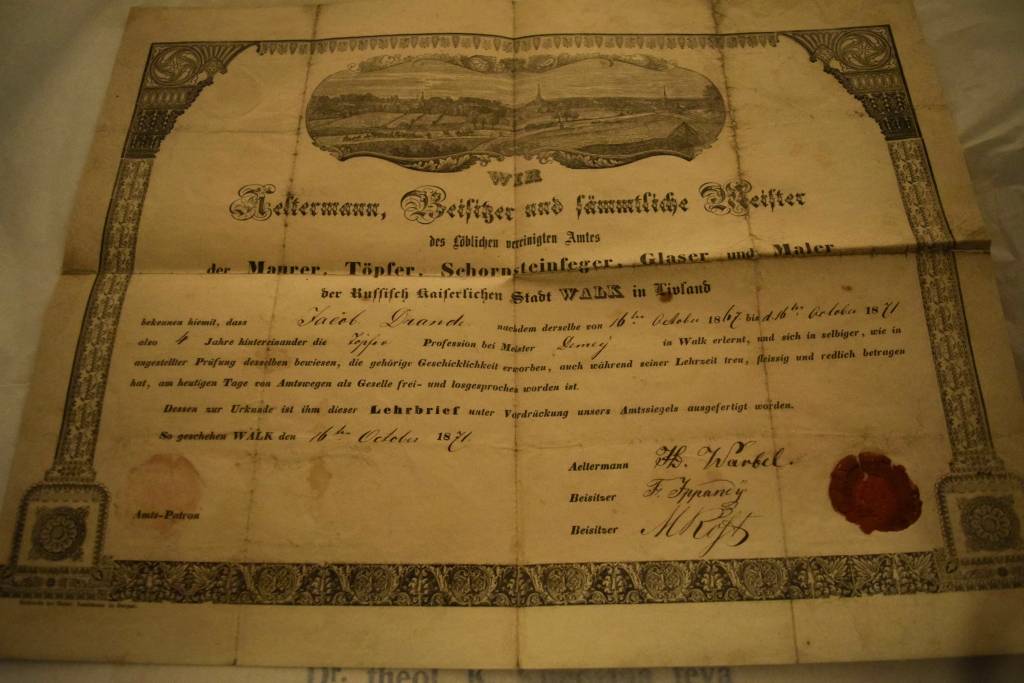 WIR
Aeltermann, Beisitzer und sämmtliche Meister
des Löblichen vereinigten Amtes
der Maurer, Töpfer, Schornsteinfeger, Glaser und Maler
der Russisch Kaiserlichen Stadt WALK in Livland
bekennen hiemit, dass Jacob nachdem derselbe von 16ten October 1867 bis d. 16ten October 1871
also 4 Jahre hintereinander die Töpfer Profession bei Meister in Walk erlernt, und sich in selbiger, wie in
angestellter Prüfung desselben bewiesen, die gehörige Geschicklichkeit erworben, auch während seiner Lehrzeit treu, fleissig und redlich betragen
hat, am heutigen Tage von Amtswegen als Geselle frei- und losgesprochen worden ist.
Dessen zur Urkunde ist ihm dieser Lehrbrief unter Vordrückung unsers Amtssiegels ausgefertigt worden.
So geschehen WALK den 16ten October 1871
Aeltermann
Beisitzer
Amts-Patron
Beisitzer
Dr. theol